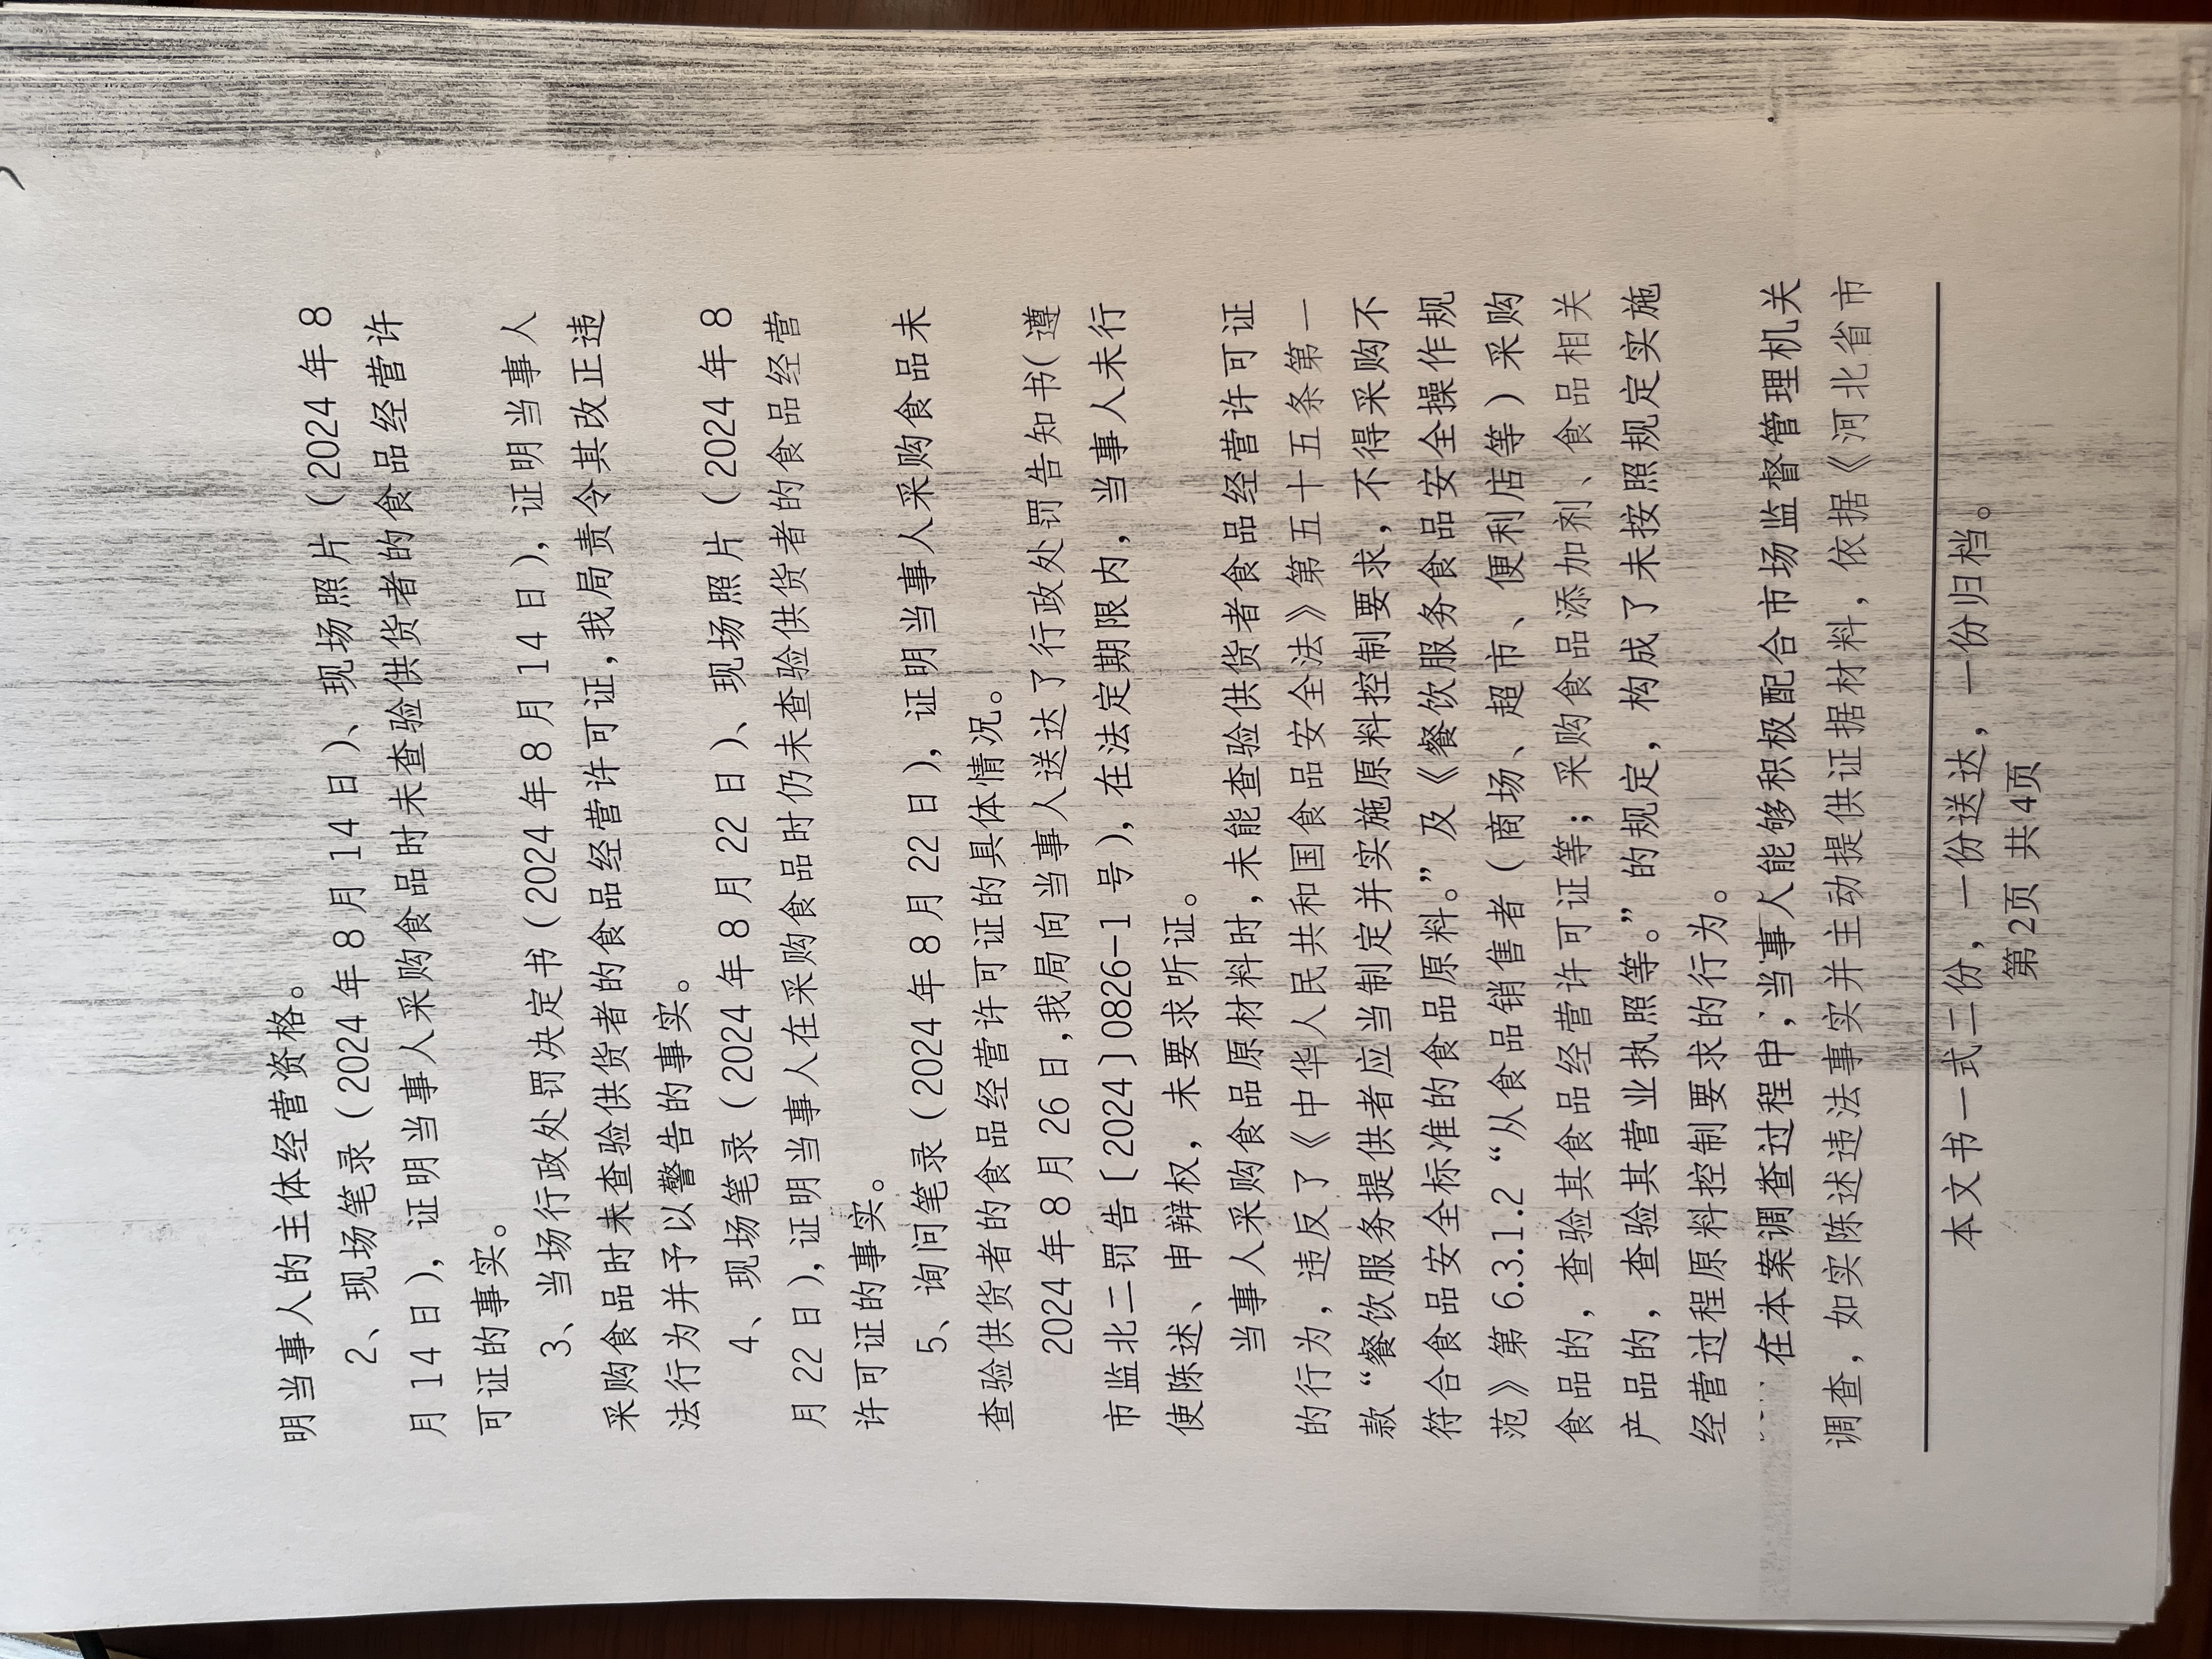 明当事人的主体经营资格。
2、现场笔录（2024 年 8 月 14 日）、现场照片（2024 年 8
月 14 日），证明当事人采购食品时未查验供货者的食品经营许
可证的事实。
3、当场行政处罚决定书（2024 年 8 月 14 日），证明当事人
采购食品时未查验供货者的食品经营许可证,我局责令其改正违
法行为并予以警告的事实。
4、现场笔录（2024 年 8 月 22 日）、现场照片（2024 年 8
月 22 日）,证明当事人在采购食品时仍未查验供货者的食品经营
许可证的事实。
5、询问笔录（2024 年 8 月 22 日），证明当事人采购食品未
查验供货者的食品经营许可证的具体情况。
2024 年 8 月 26 日,我局向当事人送达了行政处罚告知书（遵
市监北二罚告〔2024〕0826-1 号），在法定期限内，当事人未行
使陈述、申辩权，未要求听证。
当事人采购食品原材料时,未能查验供货者食品经营许可证
的行为，违反了《中华人民共和国食品安全法》第五十五条第一
款“餐饮服务提供者应当制定并实施原料控制要求，不得采购不
符合食品安全标准的食品原料。”及《餐饮服务食品安全操作规
范》第 6.3.1.2“从食品销售者（商场、超市、便利店等）采购
食品的，查验其食品经营许可证等；采购食品添加剂、食品相关
产品的，查验其营业执照等。”的规定，构成了未按照规定实施
经营过程原料控制要求的行为。
在本案调查过程中，当事人能够积极配合市场监督管理机关
调查，如实陈述违法事实并主动提供证据材料，依据《河北省市
本文书一式二份，一份送达，一份归档。
第2页 共4页